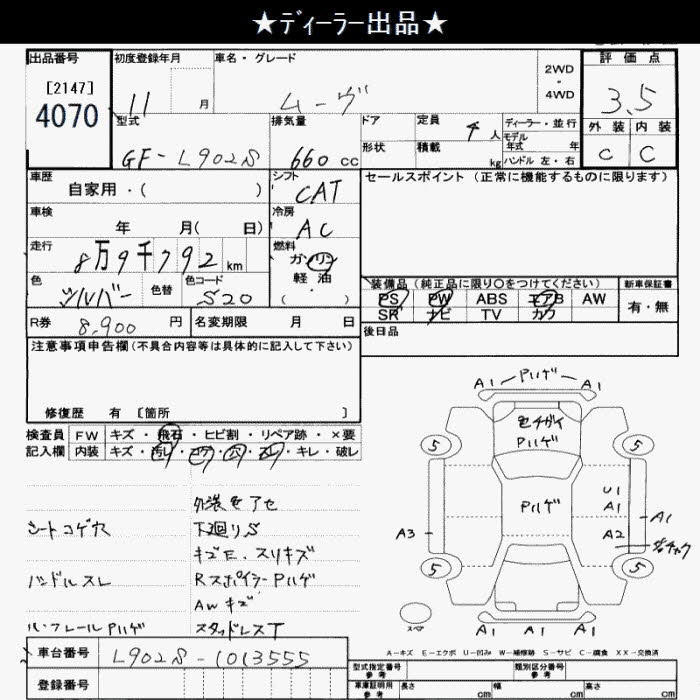 ★ディーラー出品★
出品番号
[2147]
4070
初度登録年月
11 月
車名・グレード
ムーヴ
2WD
・
4WD
評価点
3.5
外装 内装
C C
型式
GF-L902S
排気量
660 cc
ドア
形状
定員 4 人
積載 kg
ディーラー・並行
モデル
年式 年
ハンドル 左・右
車歴
自家用・( )
シフト
CAT
セールスポイント (正常に機能するものに限ります)
車検
年 月( 日)
冷房
AC
走行
8万9千792 km
燃料
ガソリン
軽・油
( ・ )
色
シルバー
色替
色コード
S20
装備品(純正品に限り○をつけてください)
PS PW ABS エアB AW
SR ナビ TV カワ
新車保証書
有・無
R券 8,900 円
名変期限 月 日
後日品
注意事項申告欄(不具合内容等は具体的に記入して下さい)
修復歴 有 〔箇所 〕
検査員
記入欄
FW キズ・飛石・ヒビ割・リペア跡・×要
内装 キズ・汚レ・コゲ・穴・スレ・キレ・破レ
外装色アセ
シートコゲ穴 下廻りS
キズE.スリキズ
ハンドルスレ RスポイラーPハゲ
AWキズ
ルーフレールPハゲ スタッドレスT
A1 Pハゲ A1
色チガイ
Pハゲ
5 5
Pハゲ
U1
A1
A1
A3 A2
5 5
スペア
A1 A1 A1
A-キズ E-エクボ U-凹み W-補修跡 S-サビ C-腐食 XX-交換済
車台番号 L902S-1013555
登録番号
型式指定番号
参考
類別区分番号
参考
車庫証明用
参考
長さ cm 幅 cm 高さ cm